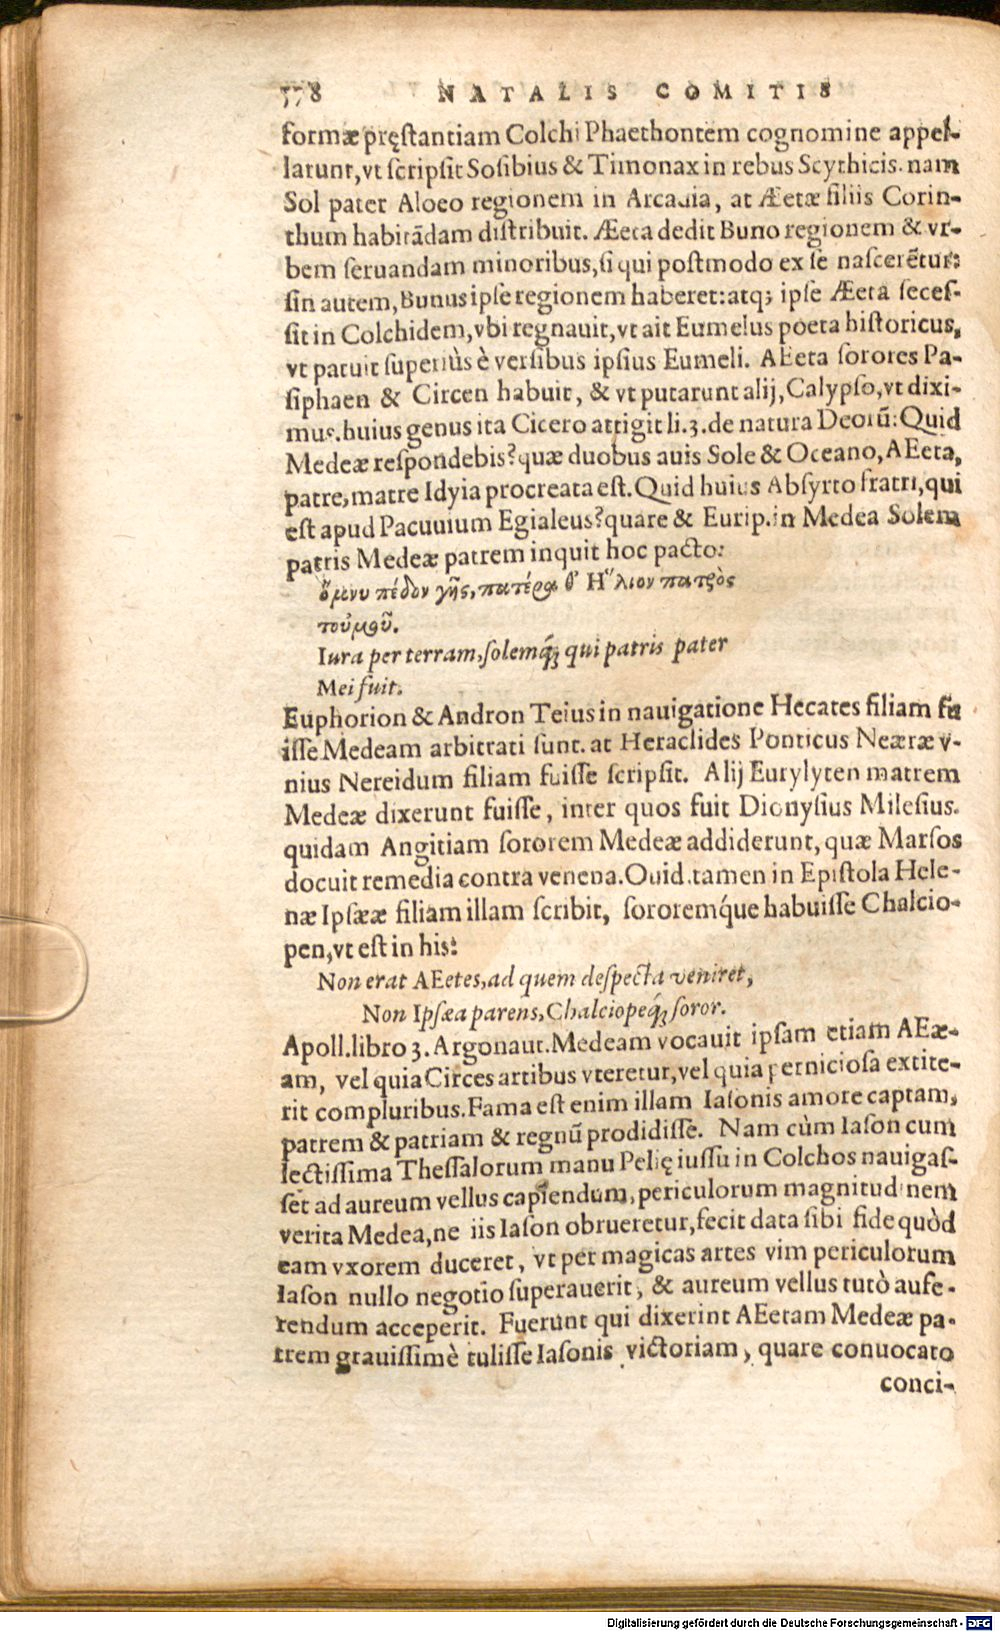 578 NATALIS COMITIS
formæ pręstantiam Colchi Phaethontem cognomine appel-
larunt, vt scripsit Sosibius & Timonax in rebus Scythicis. nam
Sol pater Aloeo regionem in Arcadia, at Æetæ filiis Corin-
thum habitādam distribuit. Æeta dedit Buno regionem & vr-
bem seruandam minoribus, si qui postmodo ex se nascerētur:
sin autem, Bunus ipse regionem haberet: atq; ipse Æeta seces-
sit in Colchidem, vbi regnauit, vt ait Eumelus poeta historicus,
vt patuit superiùs è versibus ipsius Eumeli. AEeta sorores Pa-
siphaen & Circen habuit, & vt putarunt alij, Calypso, vt dixi-
mus. huius genus ita Cicero attigit li. 3. de natura Deorū: Quid
Medeæ respondebis? quæ duobus auis Sole & Oceano, AEeta,
patre, matre Idyia procreata est. Quid huius Absyrto fratri, qui
est apud Pacuuium Egialeus? quare & Eurip. in Medea Solem
patris Medeæ patrem inquit hoc pacto:
ὄμνυ πέδον γῆς, πατέρα θ' Ἥλιον πατρὸς
τοὐμοῦ.
Iura per terram, solemq́; qui patris pater
Mei fuit.
Euphorion & Andron Teius in nauigatione Hecates filiam fu
isse Medeam arbitrati sunt. at Heraclides Ponticus Neæræ v-
nius Nereidum filiam fuisse scripsit. Alij Eurylyten matrem
Medeæ dixerunt fuisse, inter quos fuit Dionysius Milesius.
quidam Angitiam sororem Medeæ addiderunt, quæ Marsos
docuit remedia contra venena. Ouid. tamen in Epistola Hele-
næ Ipsææ filiam illam scribit, sororemq́ue habuisse Chalcio-
pen, vt est in his:
Non erat AEetes, ad quem despecta veniret,
Non Ipsæa parens, Chalciopeq́; soror.
Apoll. libro 3. Argonaut. Medeam vocauit ipsam etiam AEæ-
am, vel quia Circes artibus vteretur, vel quia perniciosa extite-
rit compluribus. Fama est enim illam Iasonis amore captam,
patrem & patriam & regnū prodidisse. Nam cùm Iason cum
lectissima Thessalorum manu Pelię iussu in Colchos nauigas-
set ad aureum vellus capiendum, periculorum magnitudinem
verita Medea, ne iis Iason obrueretur, fecit data sibi fide quòd
eam vxorem duceret, vt per magicas artes vim periculorum
Iason nullo negotio superauerit, & aureum vellus tutò aufe-
rendum acceperit. Fuerunt qui dixerint AEetam Medeæ pa-
trem grauissimè tulisse Iasonis victoriam, quare conuocato
conci-
Digitalisierung gefördert durch die Deutsche Forschungsgemeinschaft - DFG